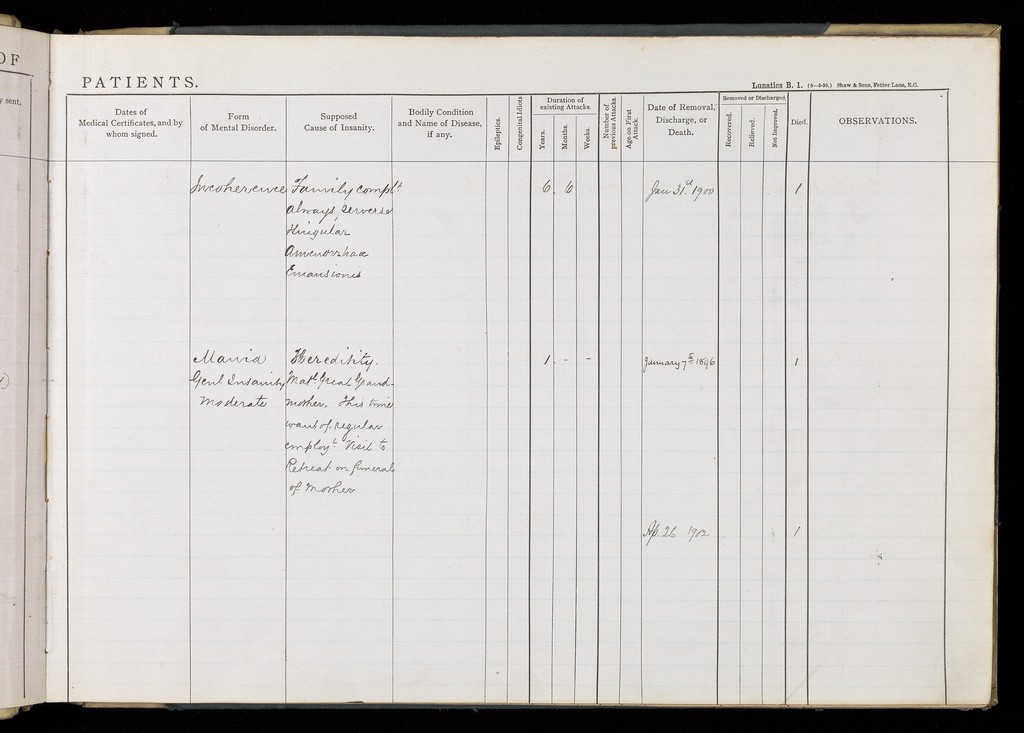 OF
y sent.
PATIENTS.
Lunatics B. 1. (6—5-90.) Shaw & Sons, Fetter Lane, E.C.
Dates of
Medical Certificates, and by
whom signed.
Form
of Mental Disorder.
Supposed
Cause of Insanity.
Bodily Condition
and Name of Disease,
if any.
Epileptics.
Congenital Idiots
Duration of
existing Attacks.
Years.
Months.
Weeks.
Number of
previous Attacks.
Age on First
Attack.
Date of Removal,
Discharge, or
Death.
Removed or Discharged.
Recovered.
Relieved.
Not Improved.
Died.
OBSERVATIONS.
Incoherence Family complt 6. 6 Jan 31st 1900 1
always perverse
Amenorrhoea
Emansionis
Mania Heredity. 1. - - January 7th 1896 1
Genl Insanity Matl Great Grand-
Moderate mother. This time
want of regular
employt Visit to
Retreat on funeral
of Mother
Ap. 26 1902 1